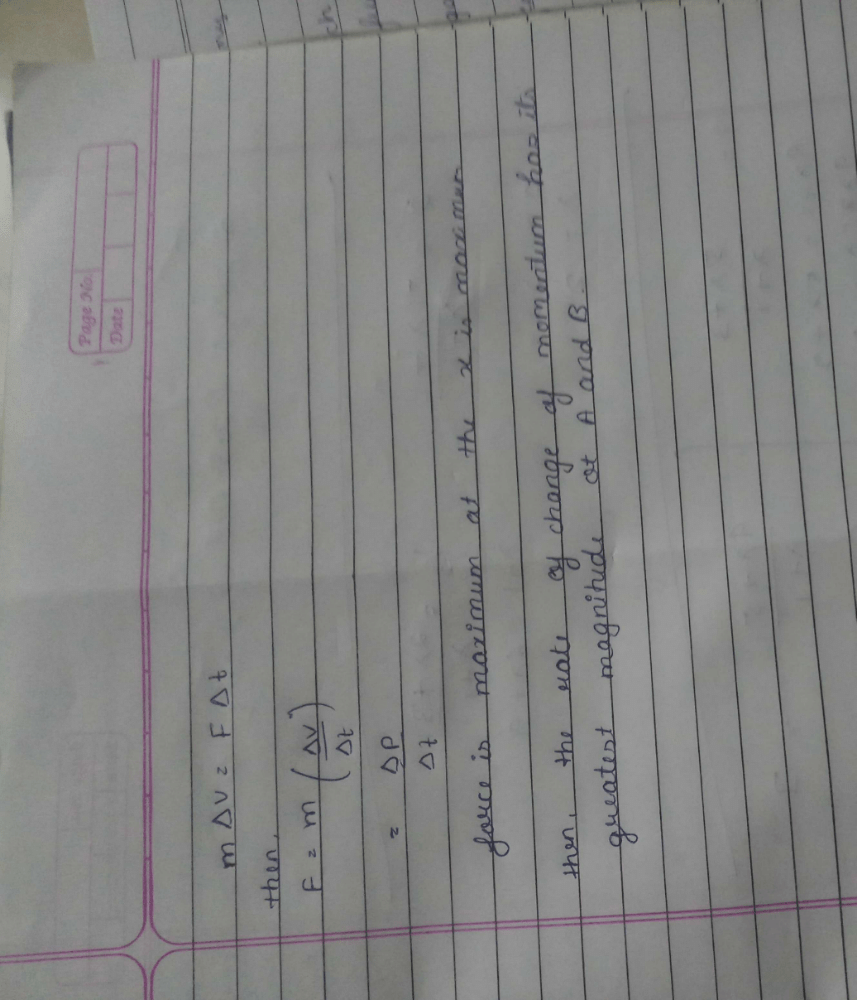 Page No.
Date
m Δv = F Δt
then,
F = m (Δv/Δt)
= Δp/Δt
force is maximum at the x is maximum
then, the rate of change of momentum has its
greatest magnitude at A and B.